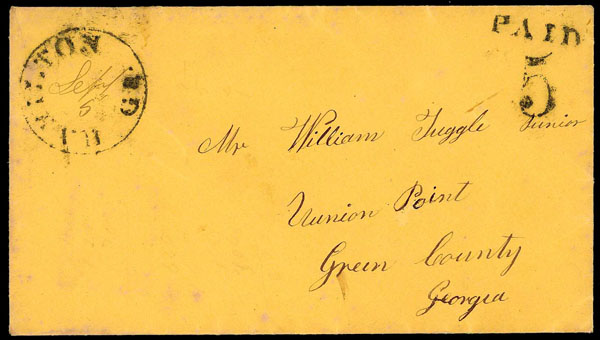 Sept
5
PAID
5
Mr William Tuggle Junior
Uunion Point
Green County
Georgea